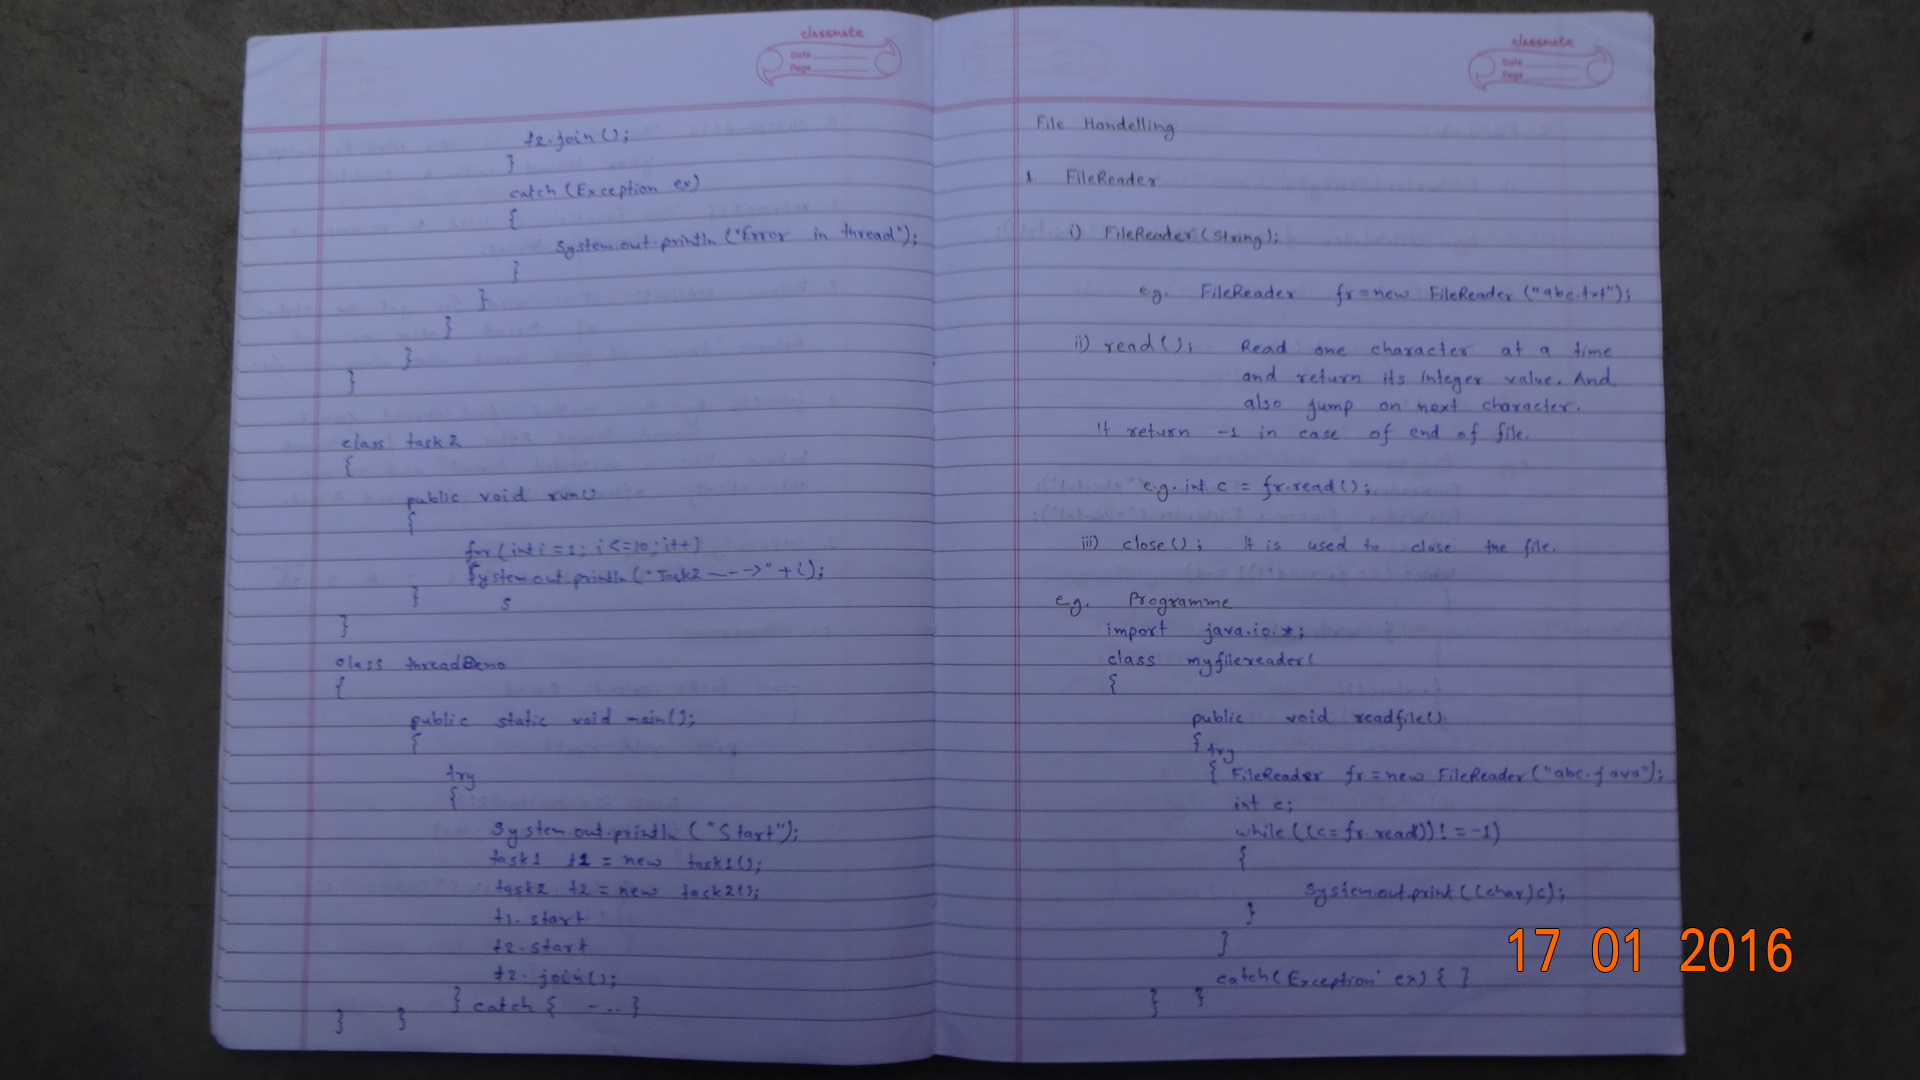 classmate
Date
Page
t2.join();
}
catch (Exception ex)
{
System.out.println ("Error in thread");
}
}
}
}
}
class task2
{
public void run()
{
for (int i = 1; i <= 10; i++)
System.out.println ("Task2 ----->" + i);
s
}
}
class threadDemo
{
public static void main();
{
try
{
System.out.println ("Start");
task1 t1 = new task1();
task2 t2 = new task2();
t1. start
t2. start
t2. join();
} catch { - ... }
} }
classmate
Date
Page
File Handelling
1. FileReader
i) FileReader (String);
e.g. FileReader fr = new FileReader ("abc.txt");
ii) read(); Read one character at a time
and return its integer value. And
also jump on next character.
It return -1 in case of end of file.
e.g. int c = fr.read();
iii) close(); It is used to close the file.
e.g. Programme
import java.io.*;
class myfilereader(
{
public void readfile()
{ try
{ FileReader fr = new FileReader ("abc.java");
int c;
while ((c = fr.read()) != -1)
{
System.out.print ((char)c);
}
}
catch (Exception ex) { }
} }
17 01 2016